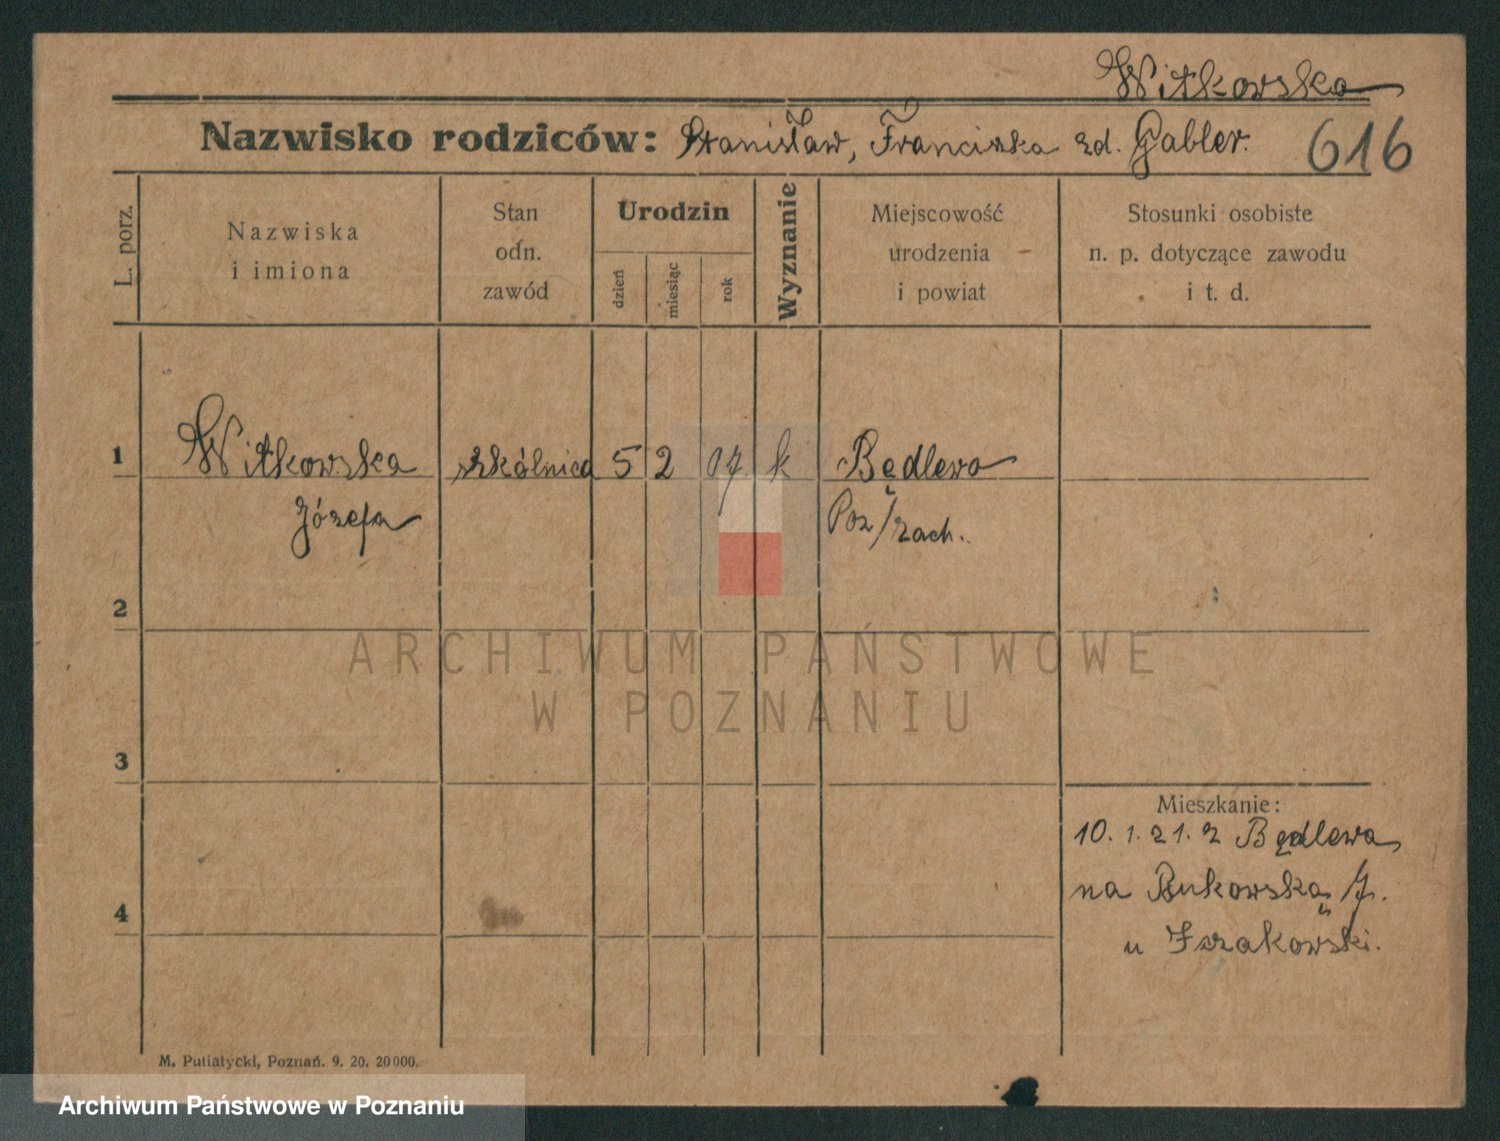 Witkowska
Nazwisko rodziców: Stanisław, Franciszka zd. Gabler. 616
L. porz.
Nazwiska
i imiona
Stan
odn.
zawód
Urodzin
dzień
miesiąc
rok
Wyznanie
Miejscowość
urodzenia
i powiat
Stosunki osobiste
n. p. dotyczące zawodu
i t. d.
1 Witkowska szkólnica 5 2 07 k Będlewo
Józefa Poz/zach.
2
ARCHIWUM PAŃSTWOWE
W POZNANIU
3
Mieszkanie:
10. 1. 21. z Będlewa
na Bukowską 7.
4
u Iszakowski.
M. Putiatycki, Poznań. 9. 20. 20000.
Archiwum Państwowe w Poznaniu